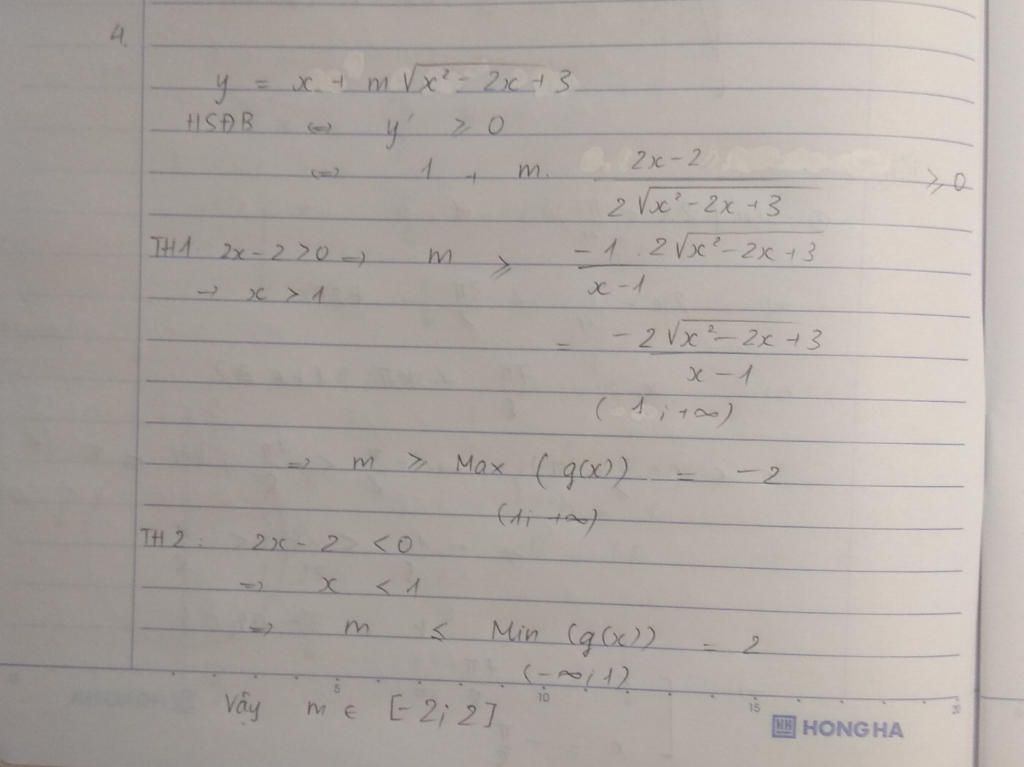 4.
y = x + m √(x² - 2x + 3)
HSĐB ⇔ y' ≥ 0
⇔ 1 + m. (2x - 2) / (2√(x² - 2x + 3)) ≥ 0
TH1 2x - 2 > 0 → m ≥ (-1 . 2√(x² - 2x + 3)) / (x - 1)
→ x > 1
= (-2√(x² - 2x + 3)) / (x - 1)
(1; +∞)
⇒ m ≥ Max (g(x)) = -2
(1; +∞)
TH2: 2x - 2 < 0
⇒ x < 1
⇒ m ≤ Min (g(x)) = 2
(-∞; 1)
Vậy m ∈ [-2; 2]
5 10 15
HONG HA